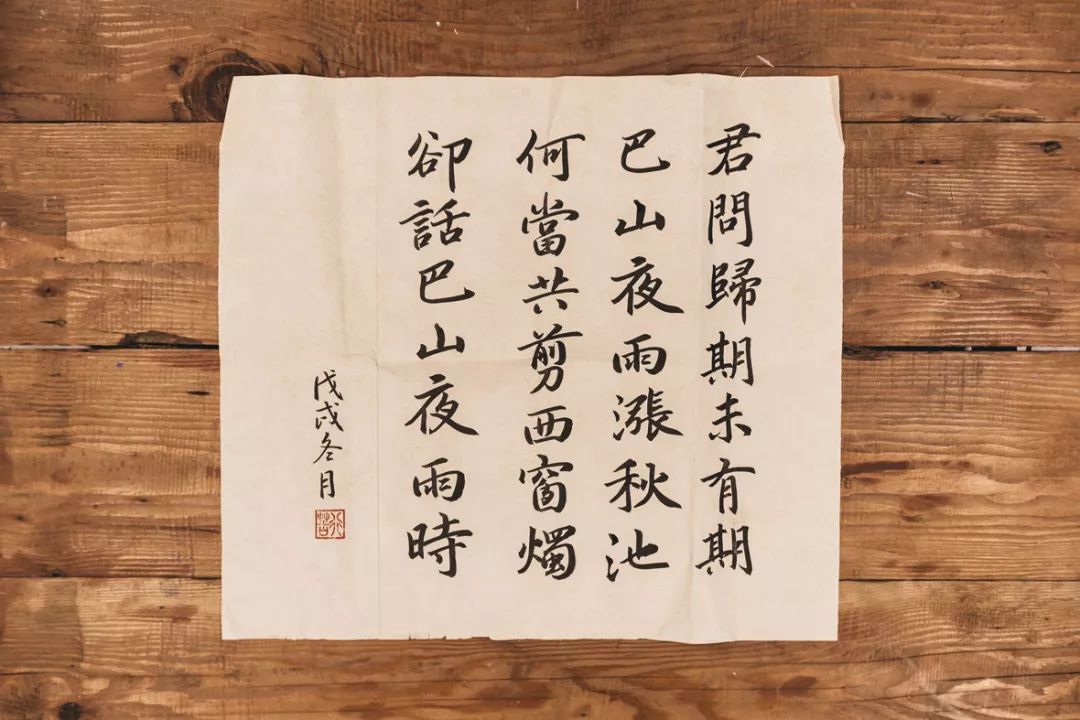 君問歸期未有期
巴山夜雨漲秋池
何當共剪西窗燭
卻話巴山夜雨時
戊戌冬月